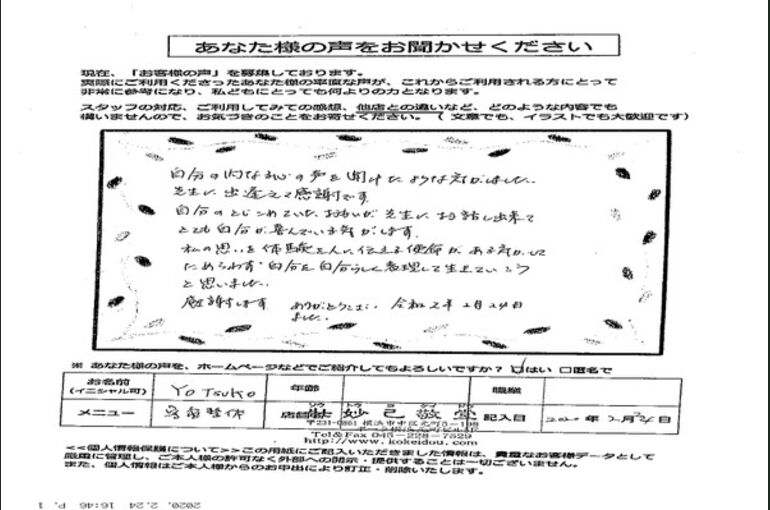 あなた様の声をお聞かせください
現在、「お客様の声」を募集しております。
実際にご利用くださったあなた様の率直な声が、これからご利用される方にとって
非常に参考になり、私どもにとっても何よりの力となります。
スタッフの対応、ご利用してみての感想、他店との違いなど、どのような内容でも
構いませんので、お気づきのことをお寄せください。(文章でも、イラストでも大歓迎です)
自分の内なる心の声を聞けたような気がしました。
先生に出逢えて感謝です。
自分のとじこめていた思いが先生にお話し出来て
とても自分が喜んでいる気がします。
私の思いを体験を人に伝える使命がある気がして
ためらわず自分を自分らしく表現して生きていこう
と思いました。
感謝します ありがとうござい 令和2年2月24日
ました。
※あなた様の声を、ホームページなどでご紹介してもよろしいですか? ☑はい □匿名で
お名前 Yo Tsuko 年齢 職業
(イニシャル可)
メニュー 店舗 妙己敬堂 記入日 2020年2月24日
〒231-0861 横浜市中区元町5-198
Tel&Fax 045-228-7529
http://www.kokeidou.com
<<個人情報保護について>>この用紙にご記入いただきました情報は、貴重なお客様データとして
厳重に管理し、ご本人様の許可なく外部への開示・提供することは一切ございません。
また、個人情報はご本人様からのお申出により訂正・削除いたします。
2020. 2.24 16:46 P. 1